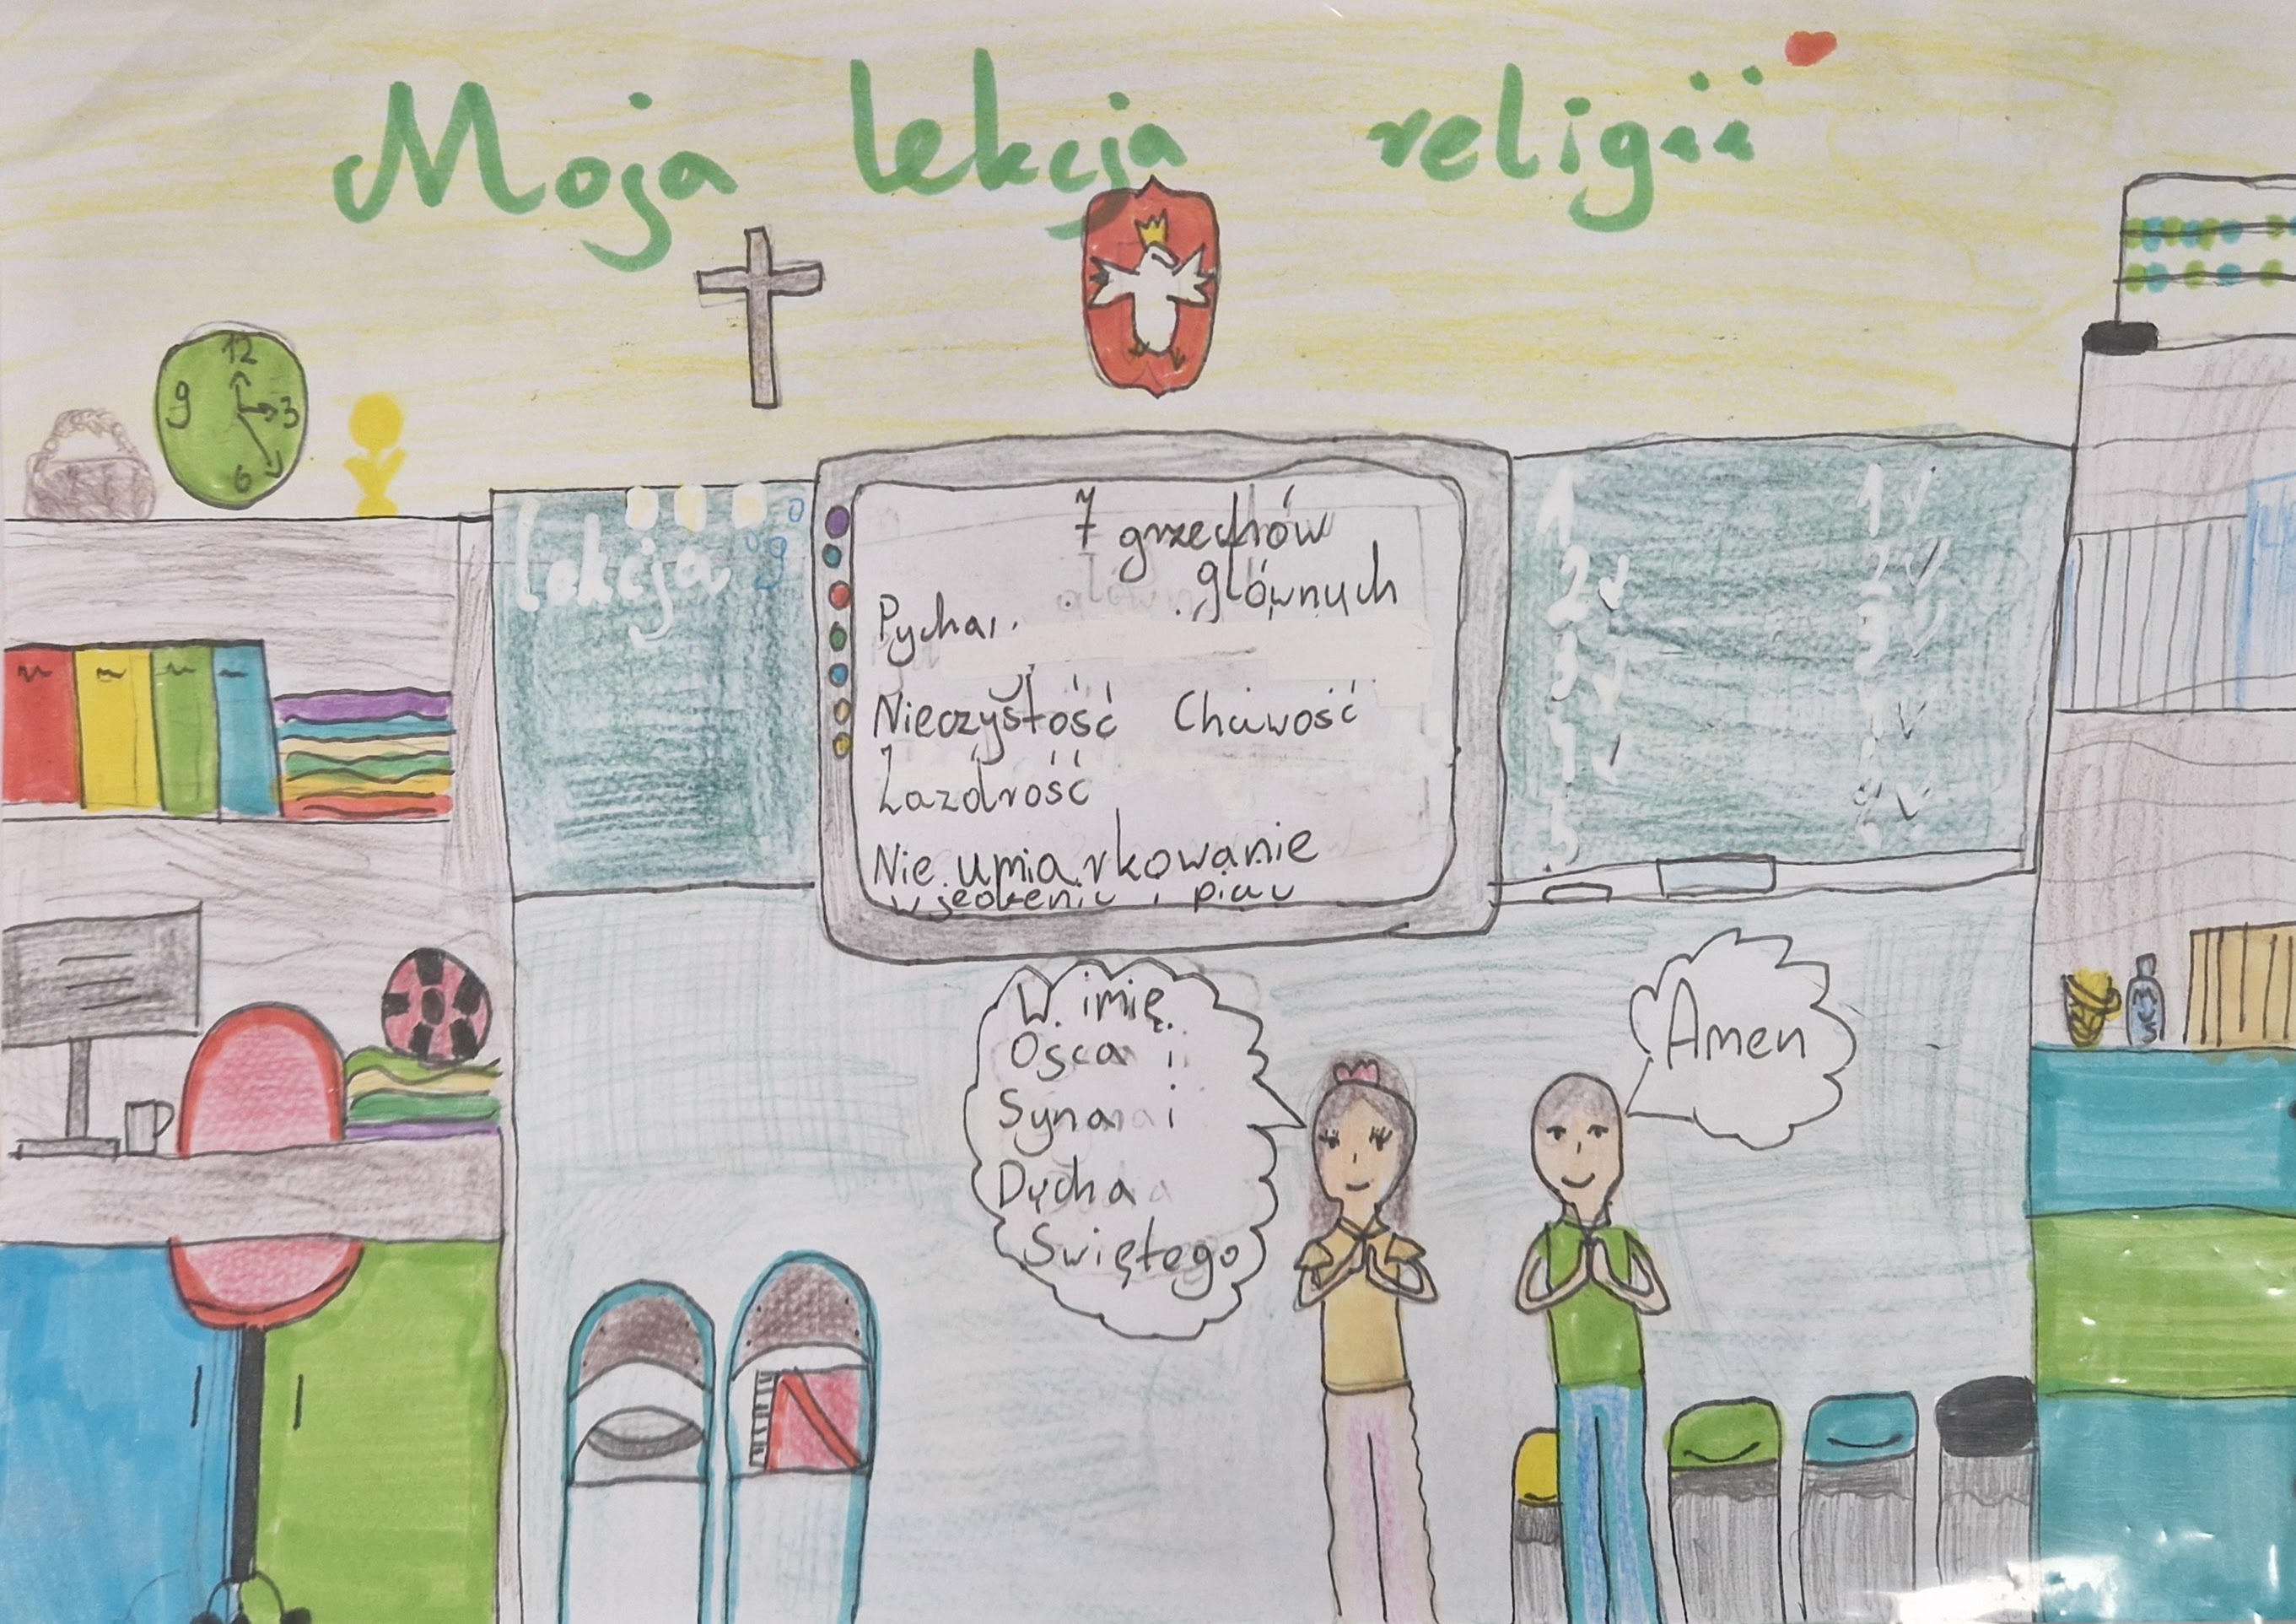 Moja lekcja religii
12
9 3
6
lekcja
7 grzechów
głównych
Pycha
Nieczystość Chciwość
Zazdrość
Nie umiarkowanie
w jedzeniu i piciu
1 1
2 2
3 3
5
W imię
Ojca i
Syna i
Ducha
Swiętego
Amen